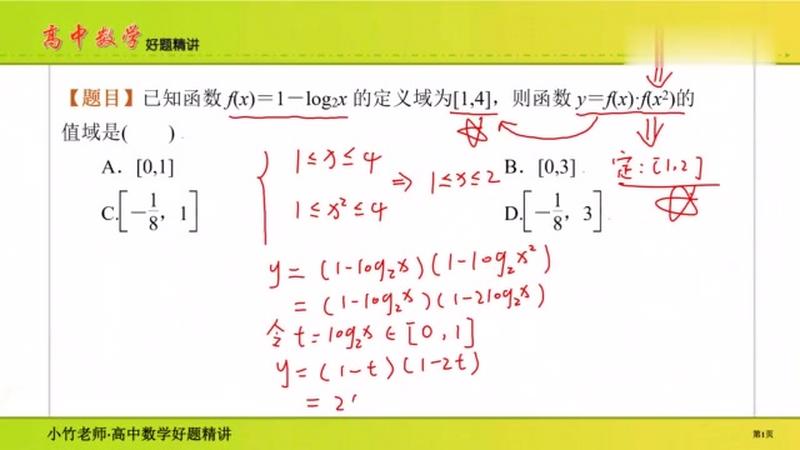 高中数学 好题精讲
【题目】已知函数 f(x)=1-log₂x 的定义域为[1,4]，则函数 y=f(x)·f(x²)的
值域是(　　)
A．[0,1]
B．[0,3]
C.[-1/8，1]
D.[-1/8，3]
1≤x≤4
1≤x²≤4
⇒ 1≤x≤2
定：[1,2]
y=(1-log₂x)(1-log₂x²)
=(1-log₂x)(1-2log₂x)
令 t=log₂x∈[0,1]
y=(1-t)(1-2t)
=2
小竹老师·高中数学好题精讲
第1页